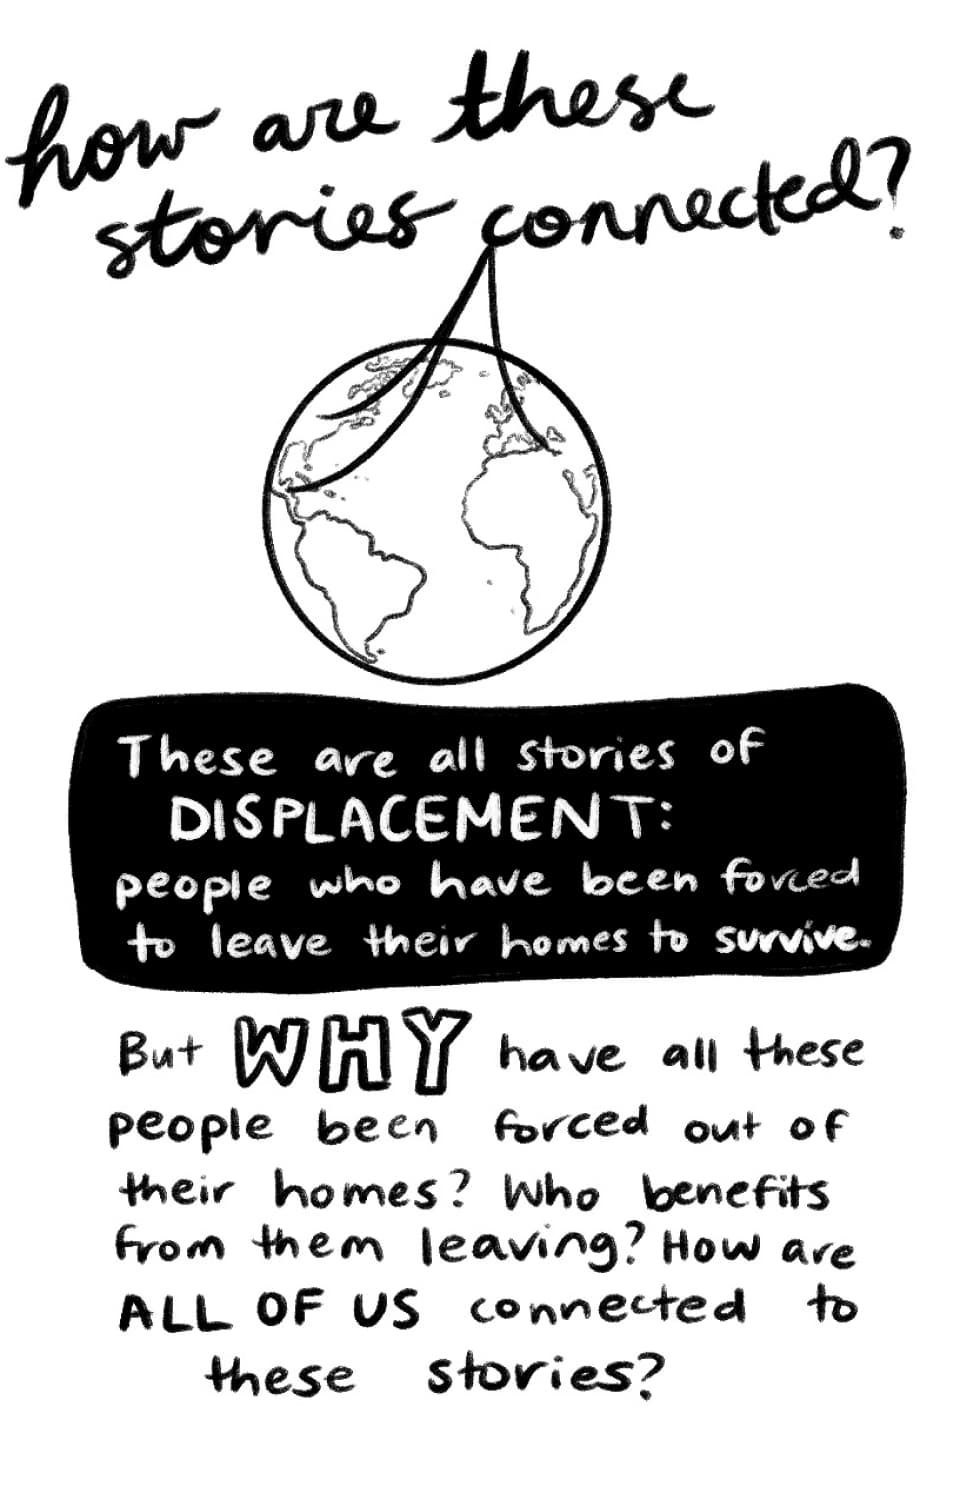 how are these
stories connected?
These are all stories of
DISPLACEMENT:
people who have been forced
to leave their homes to survive.
But WHY have all these
people been forced out of
their homes? Who benefits
from them leaving? How are
ALL OF US connected to
these stories?